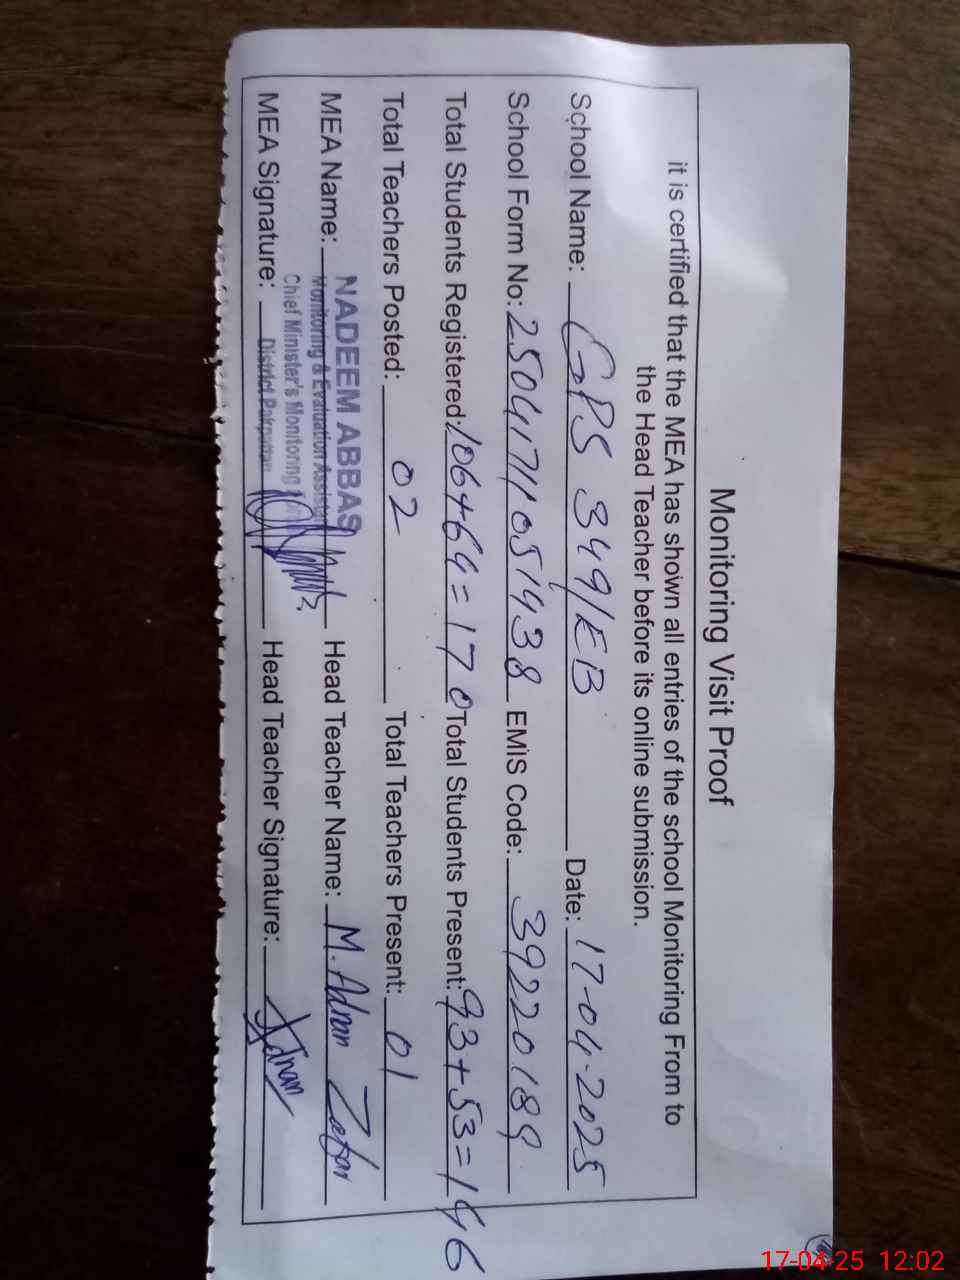 Monitoring Visit Proof
it is certified that the MEA has shown all entries of the school Monitoring From to
the Head Teacher before its online submission.
School Name: GPS 349/EB Date: 17-04-2025
School Form No: 2504171051938 EMiS Code: 39220189
Total Students Registered: 106+64=170 Total Students Present: 93+53=146
Total Teachers Posted: 02 Total Teachers Present: 01
MEA Name: NADEEM ABBAS Head Teacher Name: M. Adnan Zafar
Monitoring & Evaluation
Chief Minister's Monitoring
MEA Signature: District Pakpattan Head Teacher Signature: Adnan
17-04-25 12:02